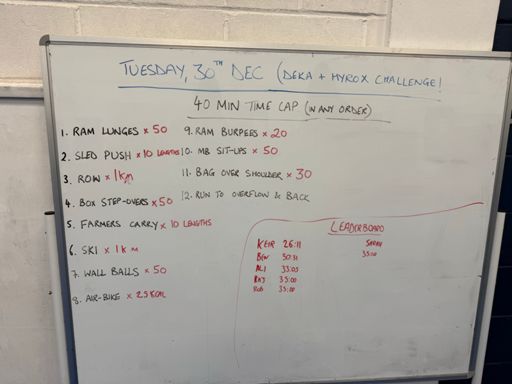 TUESDAY, 30TH DEC (DEKA + HYROX CHALLENGE!
40 MIN TIME CAP (IN ANY ORDER)
1. RAM LUNGES x 50
2. SLED PUSH x 10 LENGTHS
3. ROW x 1km
4. BOX STEP-OVERS x 50
5. FARMERS CARRY x 10 LENGTHS
6. SKI x 1KM
7. WALL BALLS x 50
8. AIR-BIKE x 25KCAL
9. RAM BURPEES x 20
10. MB SIT-UPS x 50
11. BAG OVER SHOULDER x 30
12. RUN TO OVERFLOW & BACK
LEADERBOARD
KEIR 26:11
BEN 30:31
ALI 33:03
RAJ 35:00
ROB 35:00
SARAH
35:00